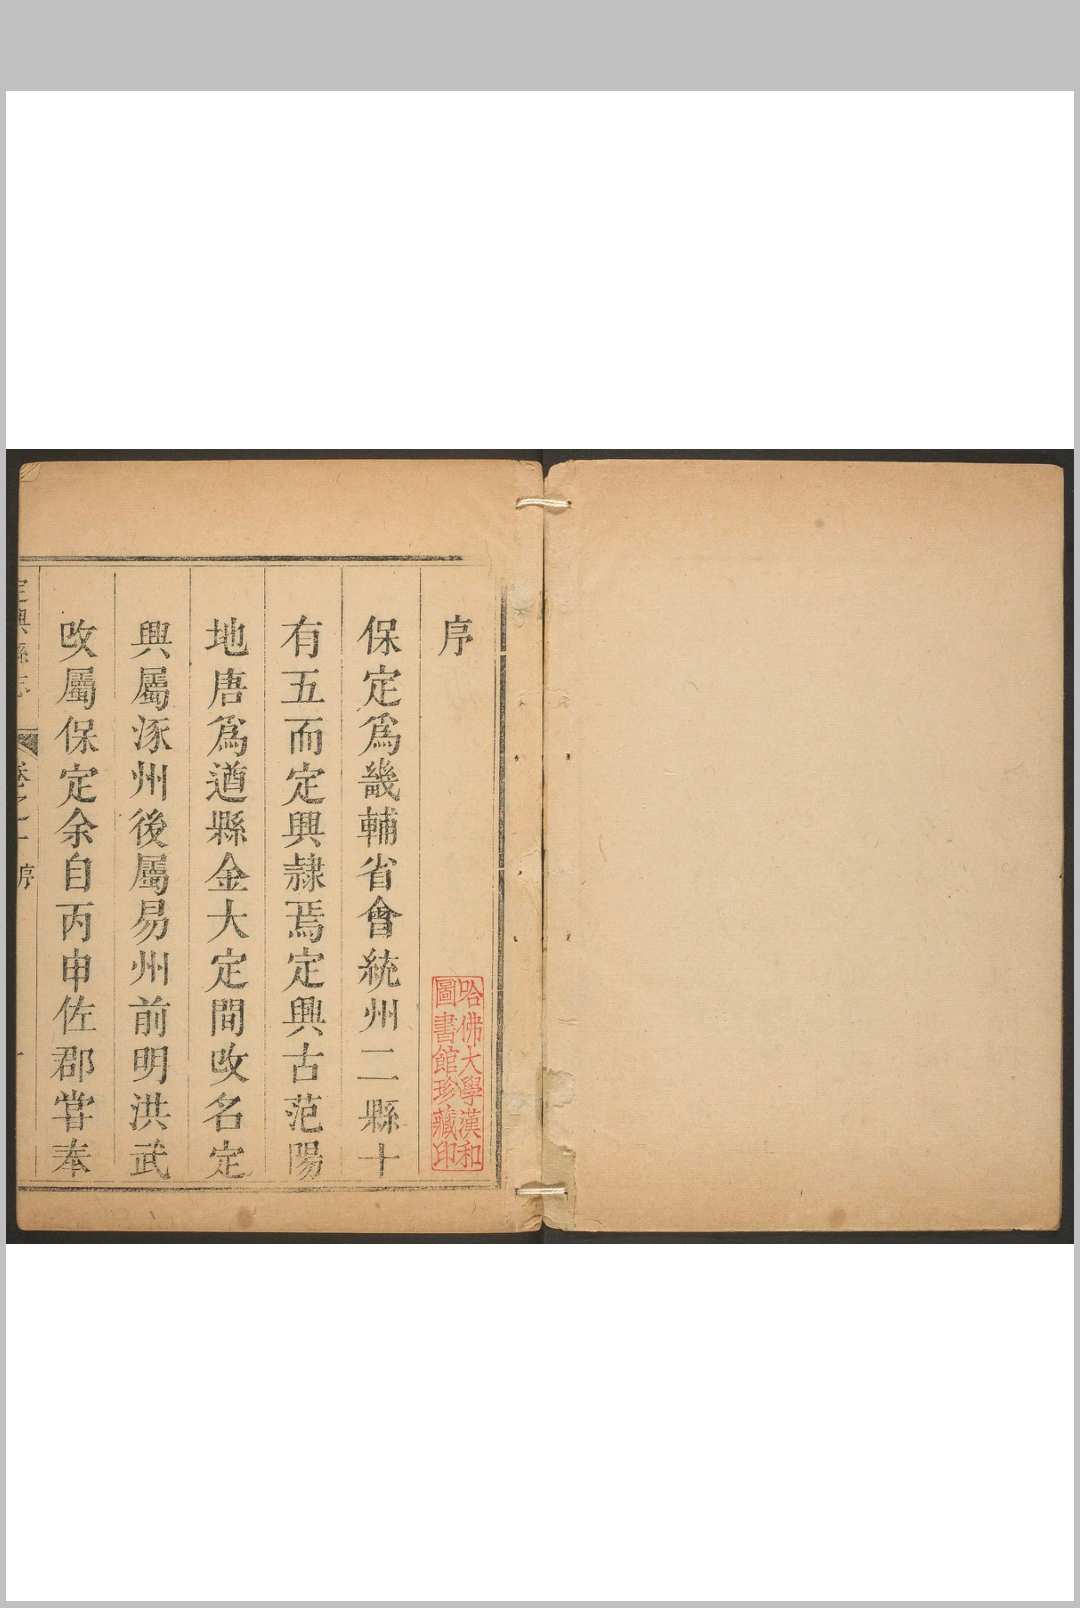 序
保定爲畿輔省會統州二縣十
有五而定興隷焉定興古范陽
地唐爲遒縣金大定間改名定
興屬涿州後屬易州前明洪武
改屬保定余自丙申佐郡嘗奉
定興縣志 卷之一 序
哈佛大學漢和
圖書館珍藏印